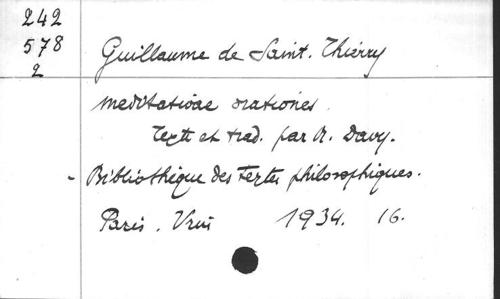 242
578
2
Guillaume de Saint. Thierry
meditativae orationes.
Texte et trad. par R. Davy.
- Bibliothèque des Textes philosophiques.
Paris. Vrin 1934. 16.